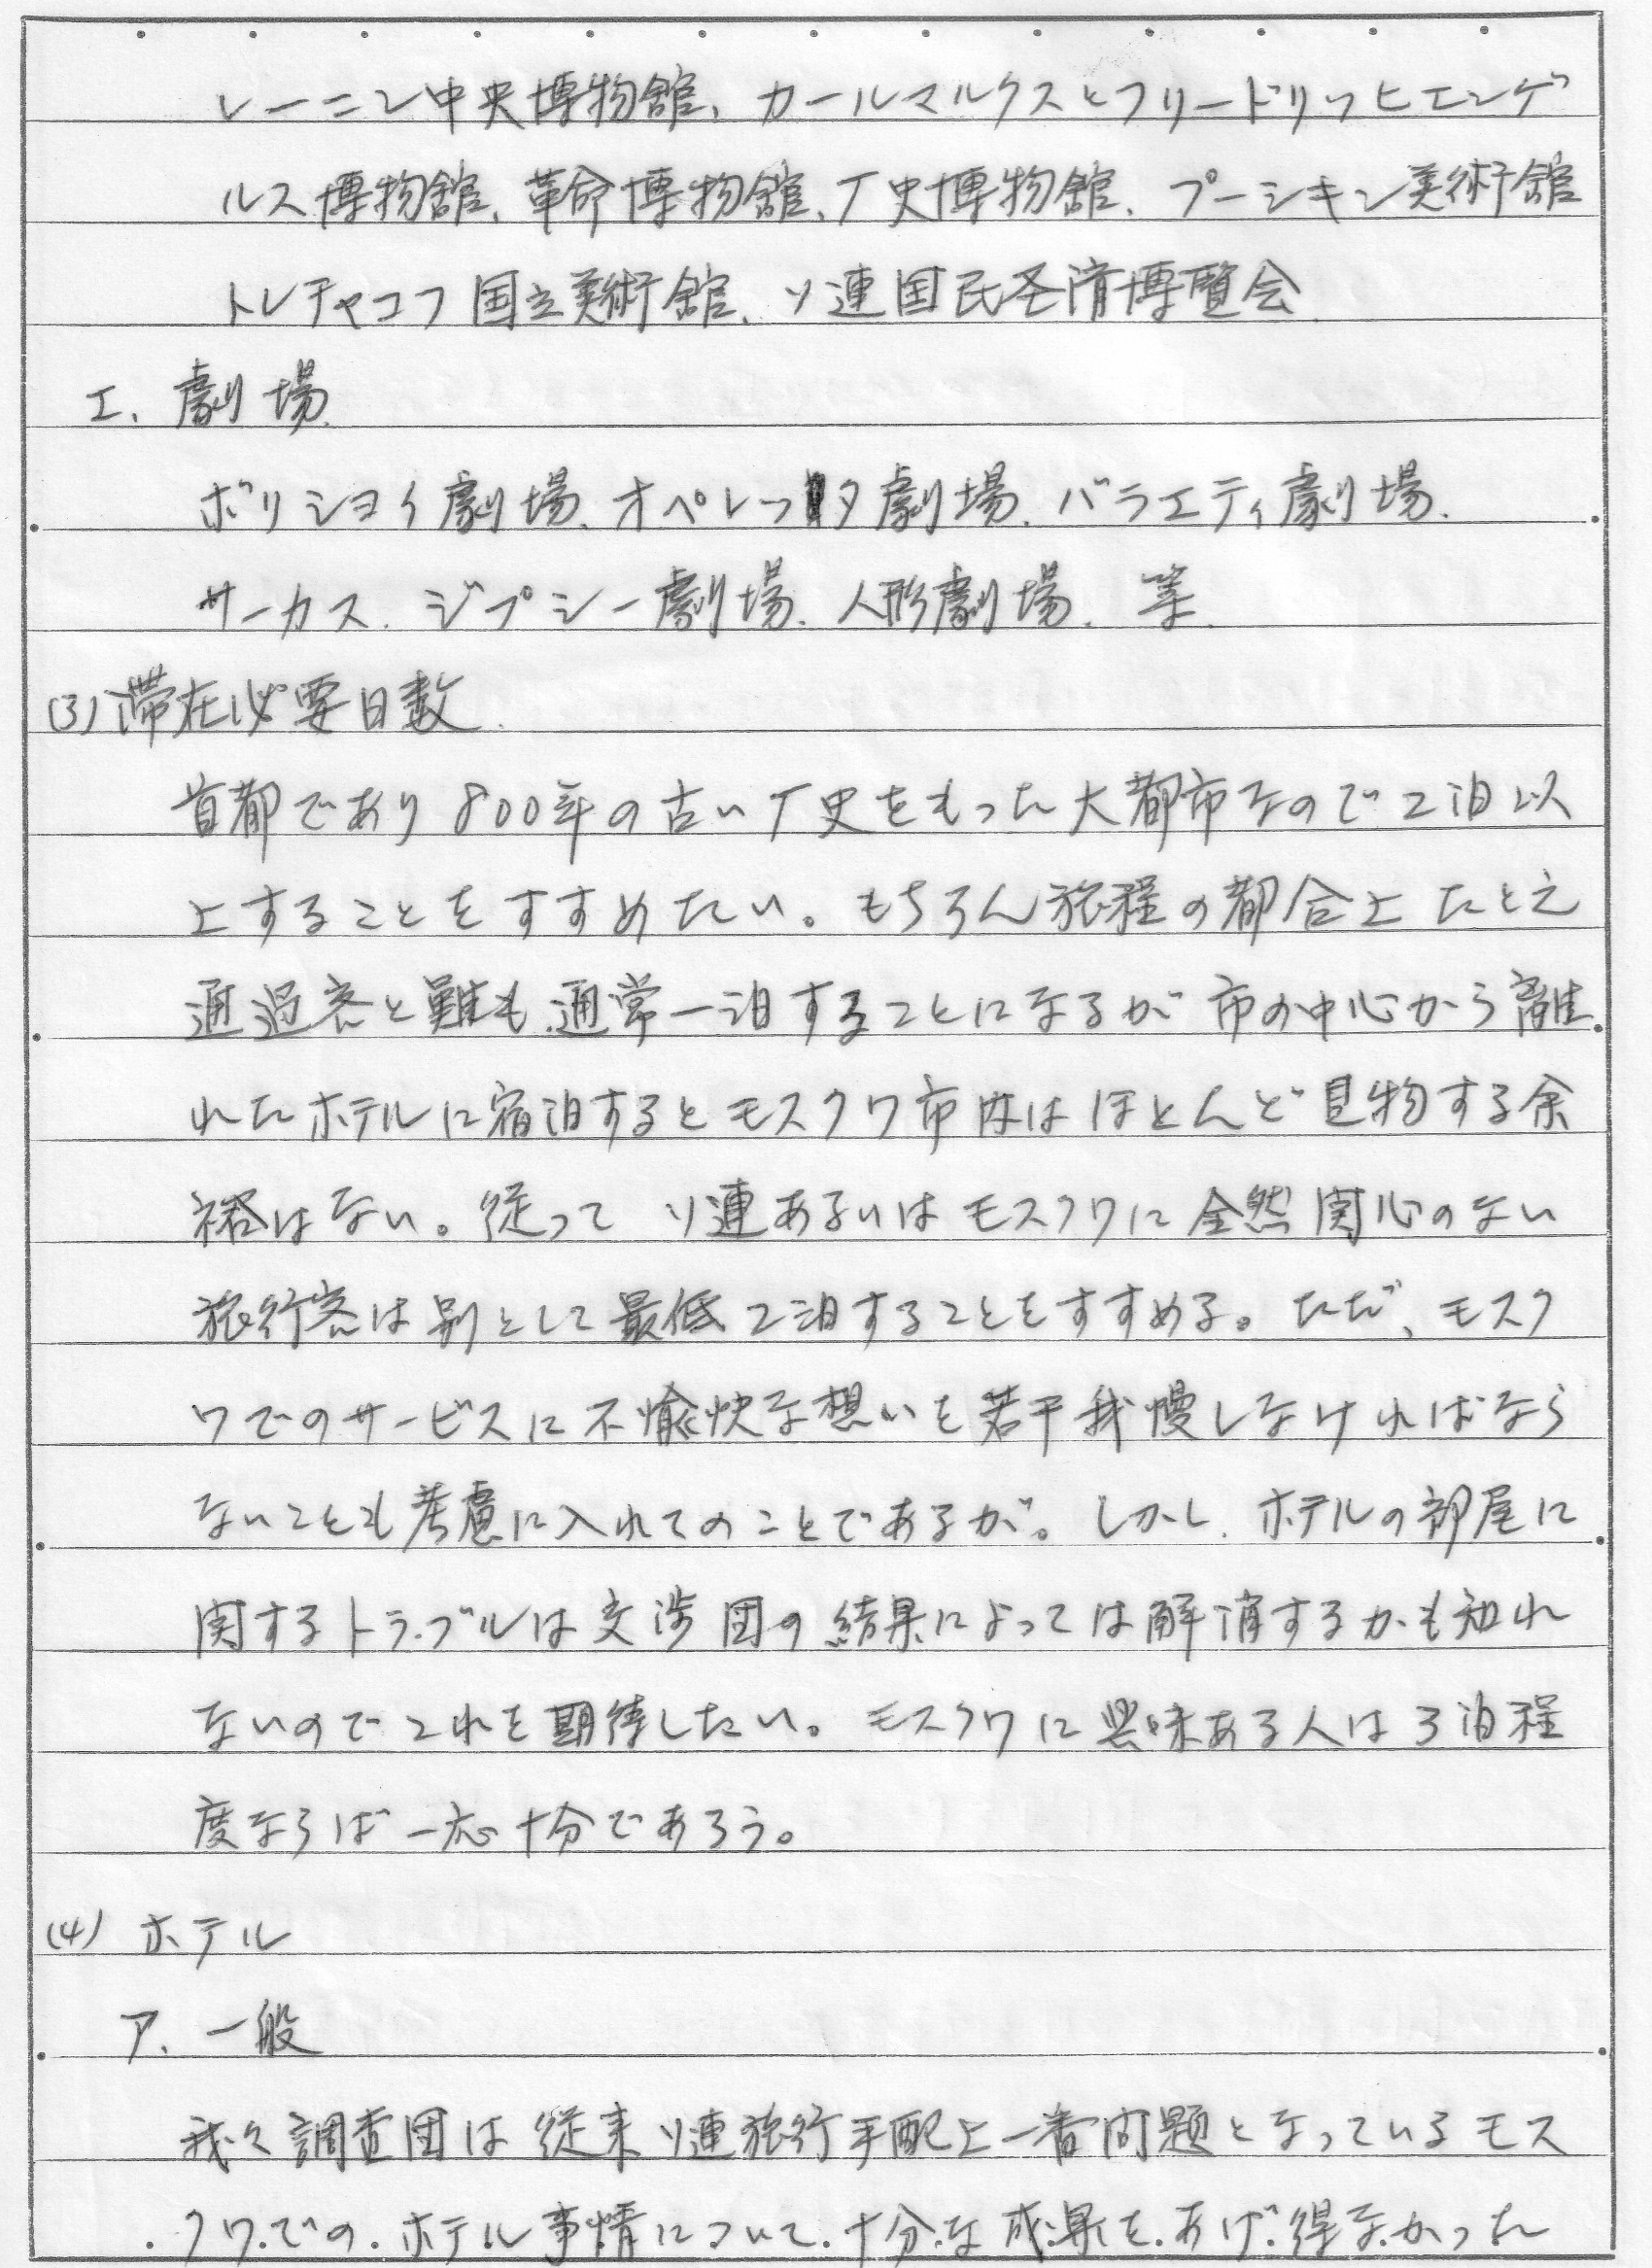 レーニン中央博物館、カールマルクスとフリードリッヒエンゲ
ルス博物館、革命博物館、厂史博物館、プーシキン美術館
トレチャコフ国立美術館、ソ連国民圣済博覧会
エ、劇場
ボリショイ劇場、オペレッタ劇場、バラエティ劇場、
サーカス、ジプシー劇場、人形劇場、等
(3)滞在必要日数
首都であり800年の古い厂史をもった大都市なので2泊以
上することをすすめたい。もちろん旅程の都合上たとえ
通過客と難も通常一泊することになるが市の中心から離
れたホテルに宿泊するとモスクワ市内はほとんど見物する余
裕はない。従ってソ連あるいはモスクワに全然関心のない
旅行客は別として最低2泊することをすすめる。ただ、モスク
ワでのサービスに不愉快な想いを若干我慢しなければなら
ないことも考慮に入れてのことであるが。しかし、ホテルの部屋に
関するトラブルは交渉団の結果によっては解消するかも知れ
ないのでこれを期待したい。モスクワに興味ある人は3泊程
度ならば一応十分であろう。
(4) ホテル
ア、一般
我々調査団は従来ソ連旅行手配上一番問題となっているモス
クワでのホテル事情について十分な成果をあげ得なかった